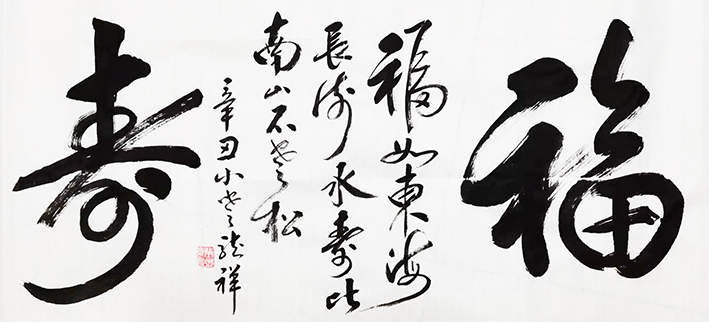 福
福如東海
長流水寿比
南山不老松
辛丑小 龙祥
寿